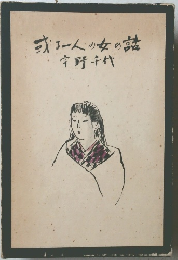 或る一人の女の話
宇野千代